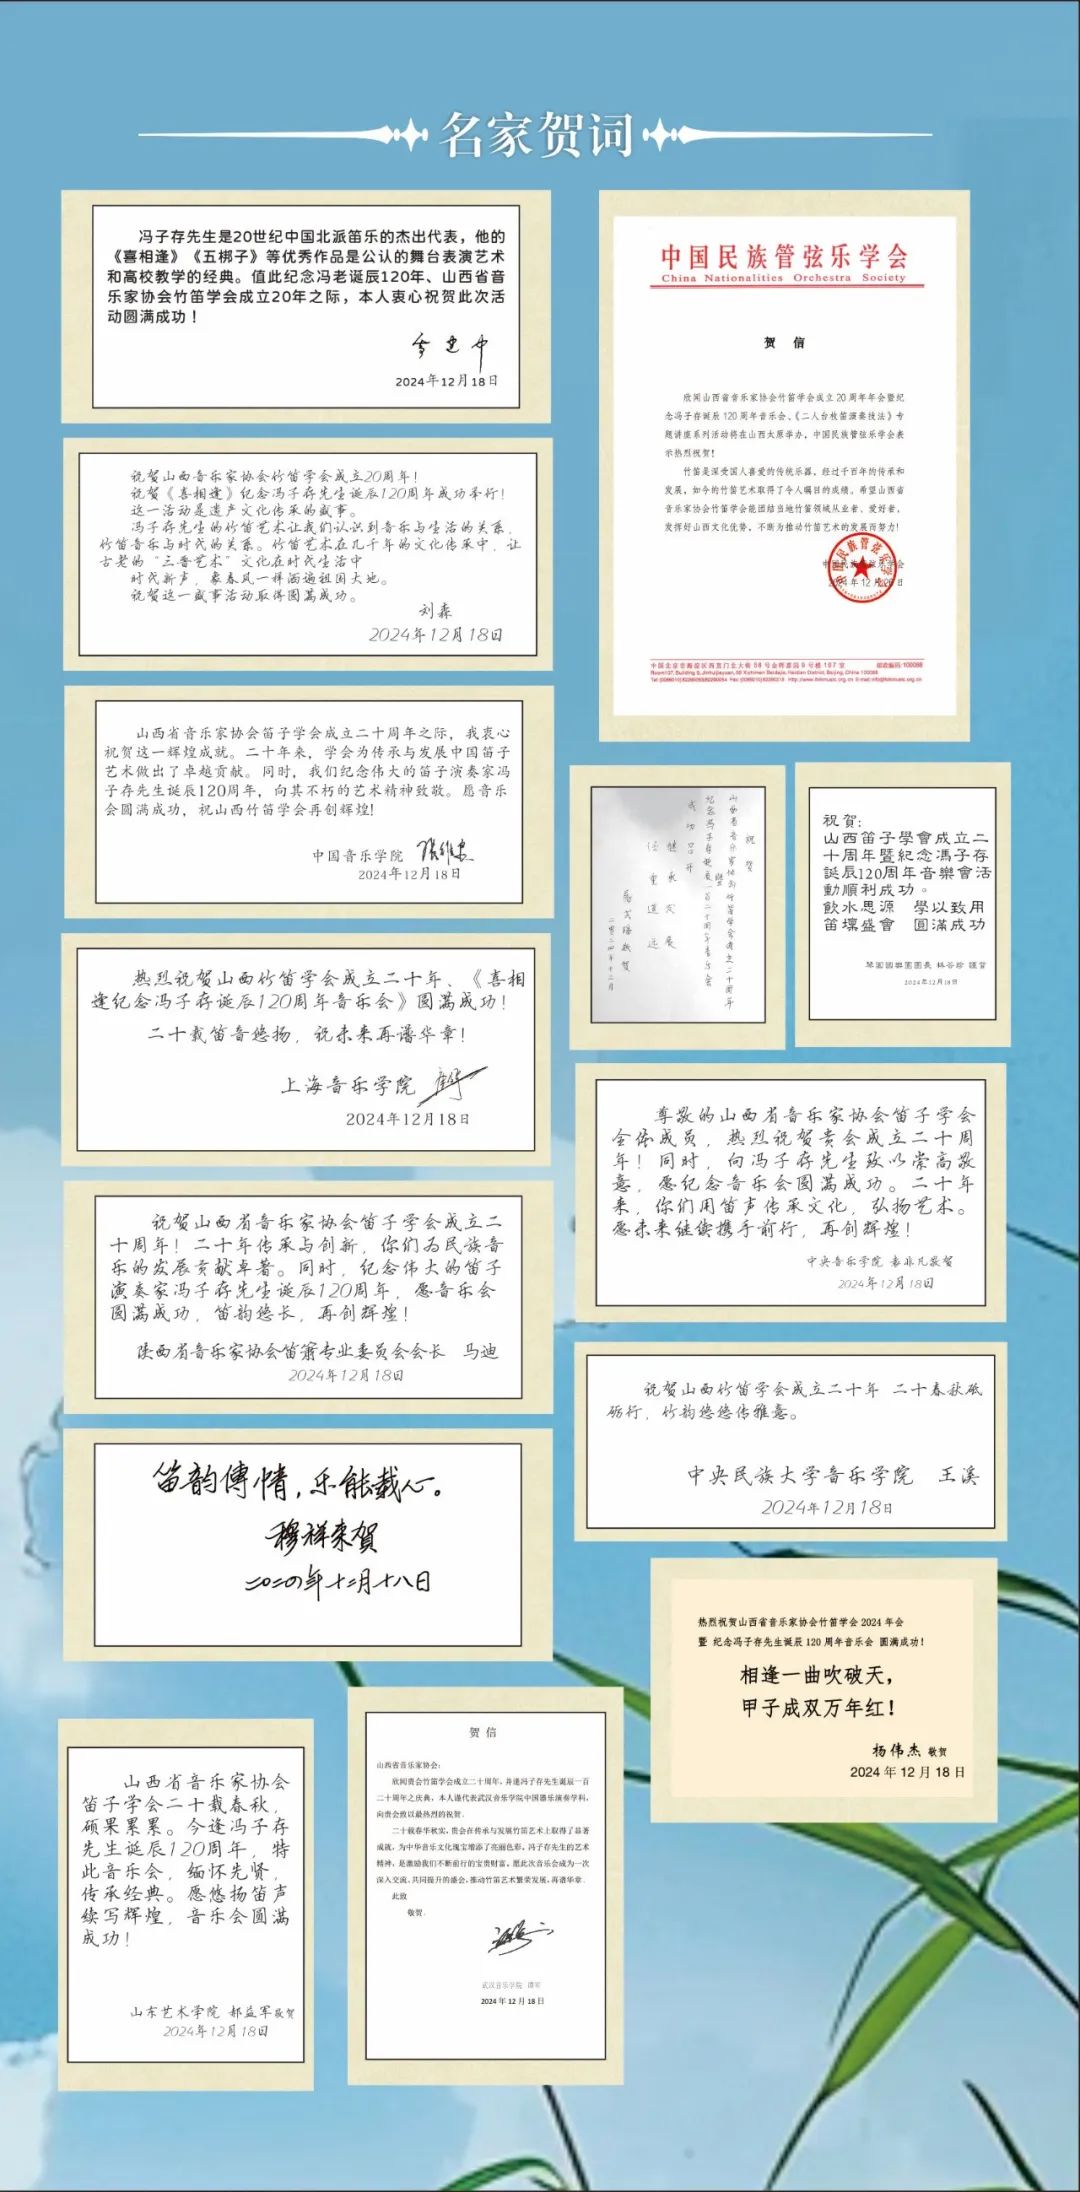 名家贺词
冯子存先生是20世纪中国北派笛乐的杰出代表，他的
《喜相逢》《五梆子》等优秀作品是公认的舞台表演艺术
和高校教学的经典。值此纪念冯老诞辰120年、山西省音
乐家协会竹笛学会成立20年之际，本人衷心祝贺此次活
动圆满成功！
2024年12月18日
祝贺山西音乐家协会竹笛学会成立20周年！
祝贺《喜相逢》纪念冯子存先生诞辰120周年成功举行！
这一活动是遗产文化传承的盛事。
冯子存先生的竹笛艺术让我们认识到音乐与生活的关系，
竹笛音乐与时代的关系。竹笛艺术在几千年的文化传承中，让
古老的“三晋艺术”文化在时代生活中
时代新声，象春风一样洒遍祖国大地。
祝贺这一盛事活动取得圆满成功。
刘森
2024年12月18日
山西省音乐家协会笛子学会成立二十周年之际，我衷心
祝贺这一辉煌成就。二十年来，学会为传承与发展中国笛子
艺术做出了卓越贡献。同时，我们纪念伟大的笛子演奏家冯
子存先生诞辰120周年，向其不朽的艺术精神致敬。愿音乐
会圆满成功，祝山西竹笛学会再创辉煌!
中国音乐学院
2024年12月18日
热烈祝贺山西竹笛学会成立二十年、《喜相
逢纪念冯子存诞辰120周年音乐会》圆满成功！
二十载笛音悠扬，祝未来再谱华章！
上海音乐学院
2024年12月18日
祝贺山西省音乐家协会笛子学会成立二
十周年！二十年传承与创新，你们为民族音
乐的发展贡献卓著。同时，纪念伟大的笛子
演奏家冯子存先生诞辰120周年，愿音乐会
圆满成功，笛韵悠长，再创辉煌！
陕西省音乐家协会笛箫专业委员会会长 马迪
2024年12月18日
笛韵傳情，乐能载心。
穆祥来贺
二〇二四年十二月十八日
山西省音乐家协会
笛子学会二十载春秋，
硕果累累。今逢冯子存
先生诞辰120周年，特
此音乐会，缅怀先贤，
传承经典。愿悠扬笛声
续写辉煌，音乐会圆满
成功！
山东艺术学院 郝益军敬贺
2024年12月18日
中国民族管弦乐学会
China Nationalities Orchestra Society
贺 信
欣闻山西省音乐家协会竹笛学会成立20周年年会暨纪
念冯子存诞辰120周年音乐会、《二人台枚笛演奏技法》专
题讲座系列活动将在山西太原举办，中国民族管弦乐学会表
示热烈祝贺！
竹笛是深受国人喜爱的传统乐器，经过千百年的传承和
发展，如今的竹笛艺术取得了令人瞩目的成绩。希望山西省
音乐家协会竹笛学会能团结当地竹笛领域从业者、爱好者，
发挥好山西文化优势，不断为推动竹笛艺术的发展而努力!
祝贺
山西省音乐家协会竹笛学会成立二十周年
暨
纪念冯子存诞辰一百二十周年音乐会
成功召开
继承发展
任重道远
二零二四年十二月
祝賀:
山西笛子學會成立二
十周年暨紀念馮子存
誕辰120周年音樂會活
動順利成功。
飲水思源 學以致用
笛壇盛會 圓滿成功
琴園國樂團團長 林谷珍 謹賀
2024年12月18日
尊敬的山西省音乐家协会笛子学会
全体成员，热烈祝贺贵会成立二十周
年！同时，向冯子存先生致以崇高敬
意，愿纪念音乐会圆满成功。二十年
来，你们用笛声传承文化，弘扬艺术。
愿未来继续携手前行，再创辉煌！
中央音乐学院 袁非凡敬贺
2024年12月18日
祝贺山西竹笛学会成立二十年 二十春秋砥
砺行，竹韵悠悠传雅意。
中央民族大学音乐学院 王溪
2024年12月18日
热烈祝贺山西省音乐家协会竹笛学会2024年会
暨 纪念冯子存先生诞辰120周年音乐会 圆满成功！
相逢一曲吹破天，
甲子成双万年红！
杨伟杰 敬贺
2024年12月18日
贺 信
山西省音乐家协会:
欣闻贵会竹笛学会成立二十周年，并逢冯子存先生诞辰一百
二十周年之庆典，本人谨代表武汉音乐学院中国器乐演奏学科，
向贵会致以最热烈的祝贺.
二十载春华秋实，贵会在传承与发展竹笛艺术上取得了显著
成就，为中华音乐文化瑰宝增添了亮丽色彩，冯子存先生的艺术
精神，是激励我们不断前行的宝贵财富，愿此次音乐会成为一次
深入交流，共同提升的盛会，推动竹笛艺术繁荣发展，再谱华章.
此致
敬贺.
武汉音乐学院
2024年12月18日